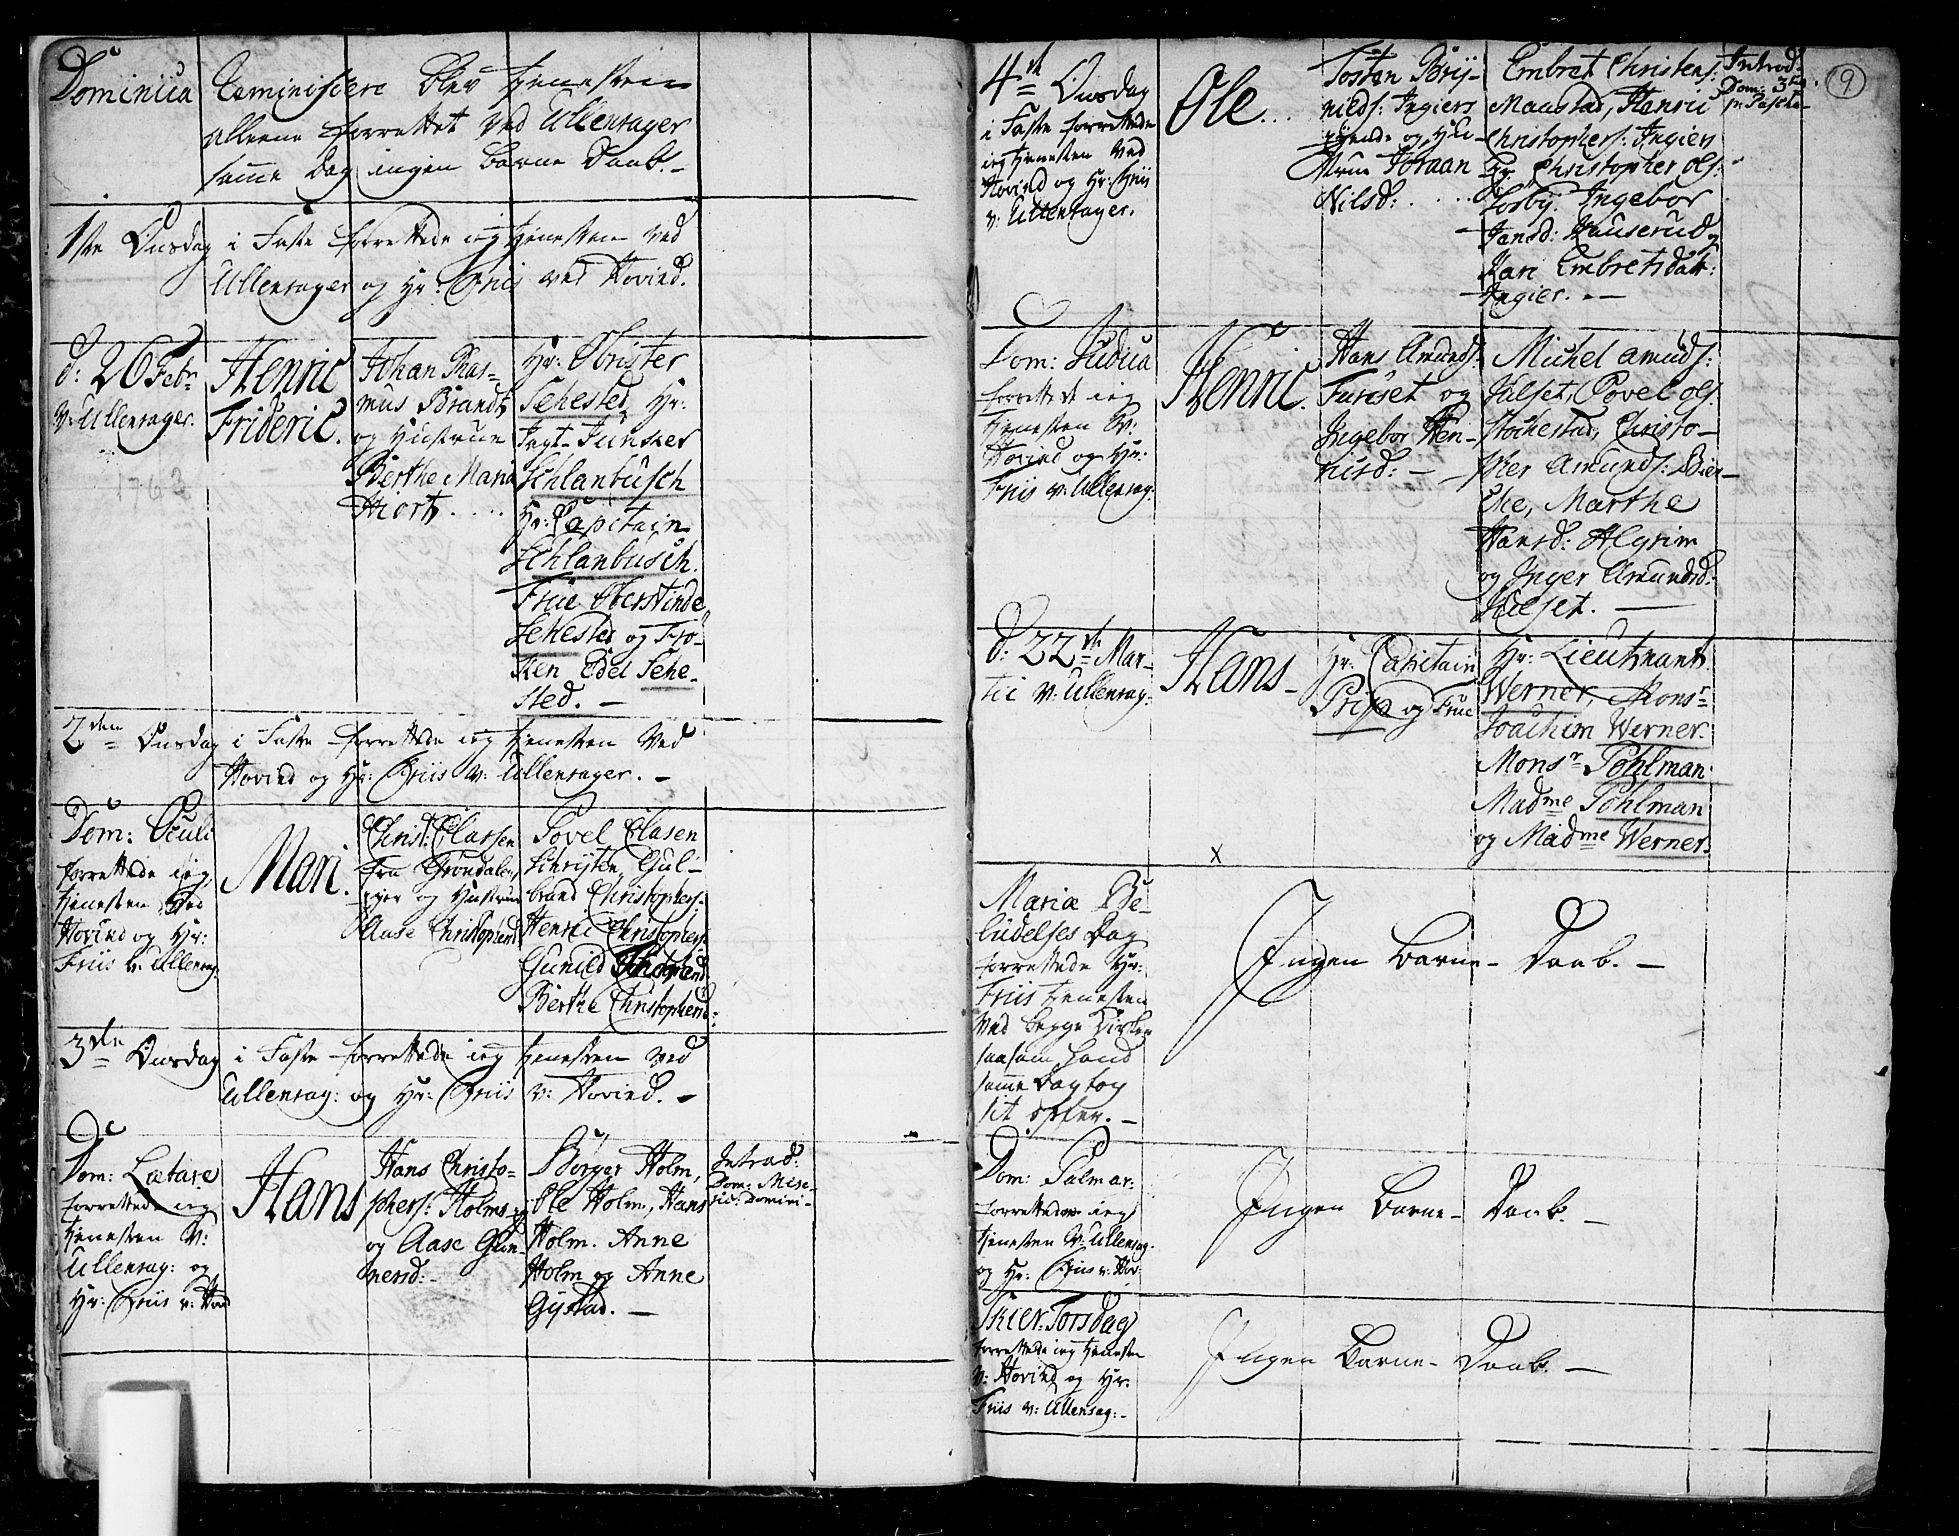 Dominica Reminiscere blev tienesten
alleene forrettet ved Ullensager
samme Dag ingen Barne Daab. –
1ste Onsdag i Faste forrettede ieg tienesten ved
Ullensager og Hr: Friis ved Hovind.
d: 26 Febr
v: Ullensager.
1762
Henric
Frideric.
Johan Ras-
mus Brandt
og Hustrue
Berthe Maria
Hiort. . . . .
Hr: Obrister
Sehested, Hr:
Jagt-Junker
Schlanbusch
Hr: Capitain
Schlanbusch.
Frue Oberstinde
Sehested og Frö-
ken Edel Sehe-
sted. –
2den Onsdag i Faste forrettede ieg tienesten ved
Hovind og Hr: Friis v: Ullensager. –
Dom: Oculi
forrettede ieg
tienesten ved
Hovind og Hr:
Friis v: Ullensag:
Mari.
Christ: Classen
fra Gröndalen
og Hustrue
Aase Christophersd
Povel Clasen
Gul-
brand Christophers:
Henric Christophers:
Gunild
Berthe Christophersd:
3die Onsdag i Faste forrettede ieg tienesten ved
Ullensag: og Hr: Friis v: Hovind. –
Dom: Lætare
forrettede ieg
tienesten v:
Ullensag: og
Hr: Friis v: Hovd
Hans
Hans Christo-
phers: Holms ey:
og Aase Gun-
nersd: –
Börger Holm,
Ole Holm, Hans
Holm. Anne
Holm og Anne
Gystad. –
Introd:
Dom: Mise-
ric: Domini –
9
4de Onsdag
i Faste forrettede
ieg tienesten ved
Hovind og Hr: Friis
v: Ullensager.
Ole. . .
Tosten Bry-
nilds: Ingiers
eyende og Hu-
strue Joraan
Nilsd: . . . .
Embret Christens:
Maustad, Henric
Christophers: Ingier
Christopher Ols:
Ingebor
Jansd: Hauserud,
Kari Embretsdatt:
Ingier. –
Introd:
Dom: 3tia
p: Pascha
Dom: Judica
forrettede ieg
tienesten v:
Hovind og Hr:
Friis v: Ullensag:
Henric.
Hans Amunds:
Furuset og
Ingebor Hen-
ricsd: –
Michel Amuds:
Julset, Povel Ols:
Christo-
pher Amunds: Bier-
cke, Marthe
Hansd: Algrim
og Inger Amundsd:
Julset. –
d: 22de Mar-
tii v: Ullensag:
Hans –
Hr: Capitain
Prips og Frue
Hr: Lieutnant
Werner, Monsr
Joachim Werner.
Monsr Pohlman
Madme Pohlman
og Madme Werner.
x
Mariæ Be-
budelses Dag
forrettede Hr:
Friis tienesten
ved begge Kirker
saasom Hand
samme Dag tog
sit offer. –
Ingen Barne-Daab. –
Dom: Palmar:
forrettede ieg
tienesten v: Ullensag.
og Hr: Friis v: Hov:
Ingen Barne-Daab. –
Skier-Torsdag
forrettede ieg tienesten
v: Hovind og Hr:
Friis v: Ullensag: –
Ingen Barne-Daab. –